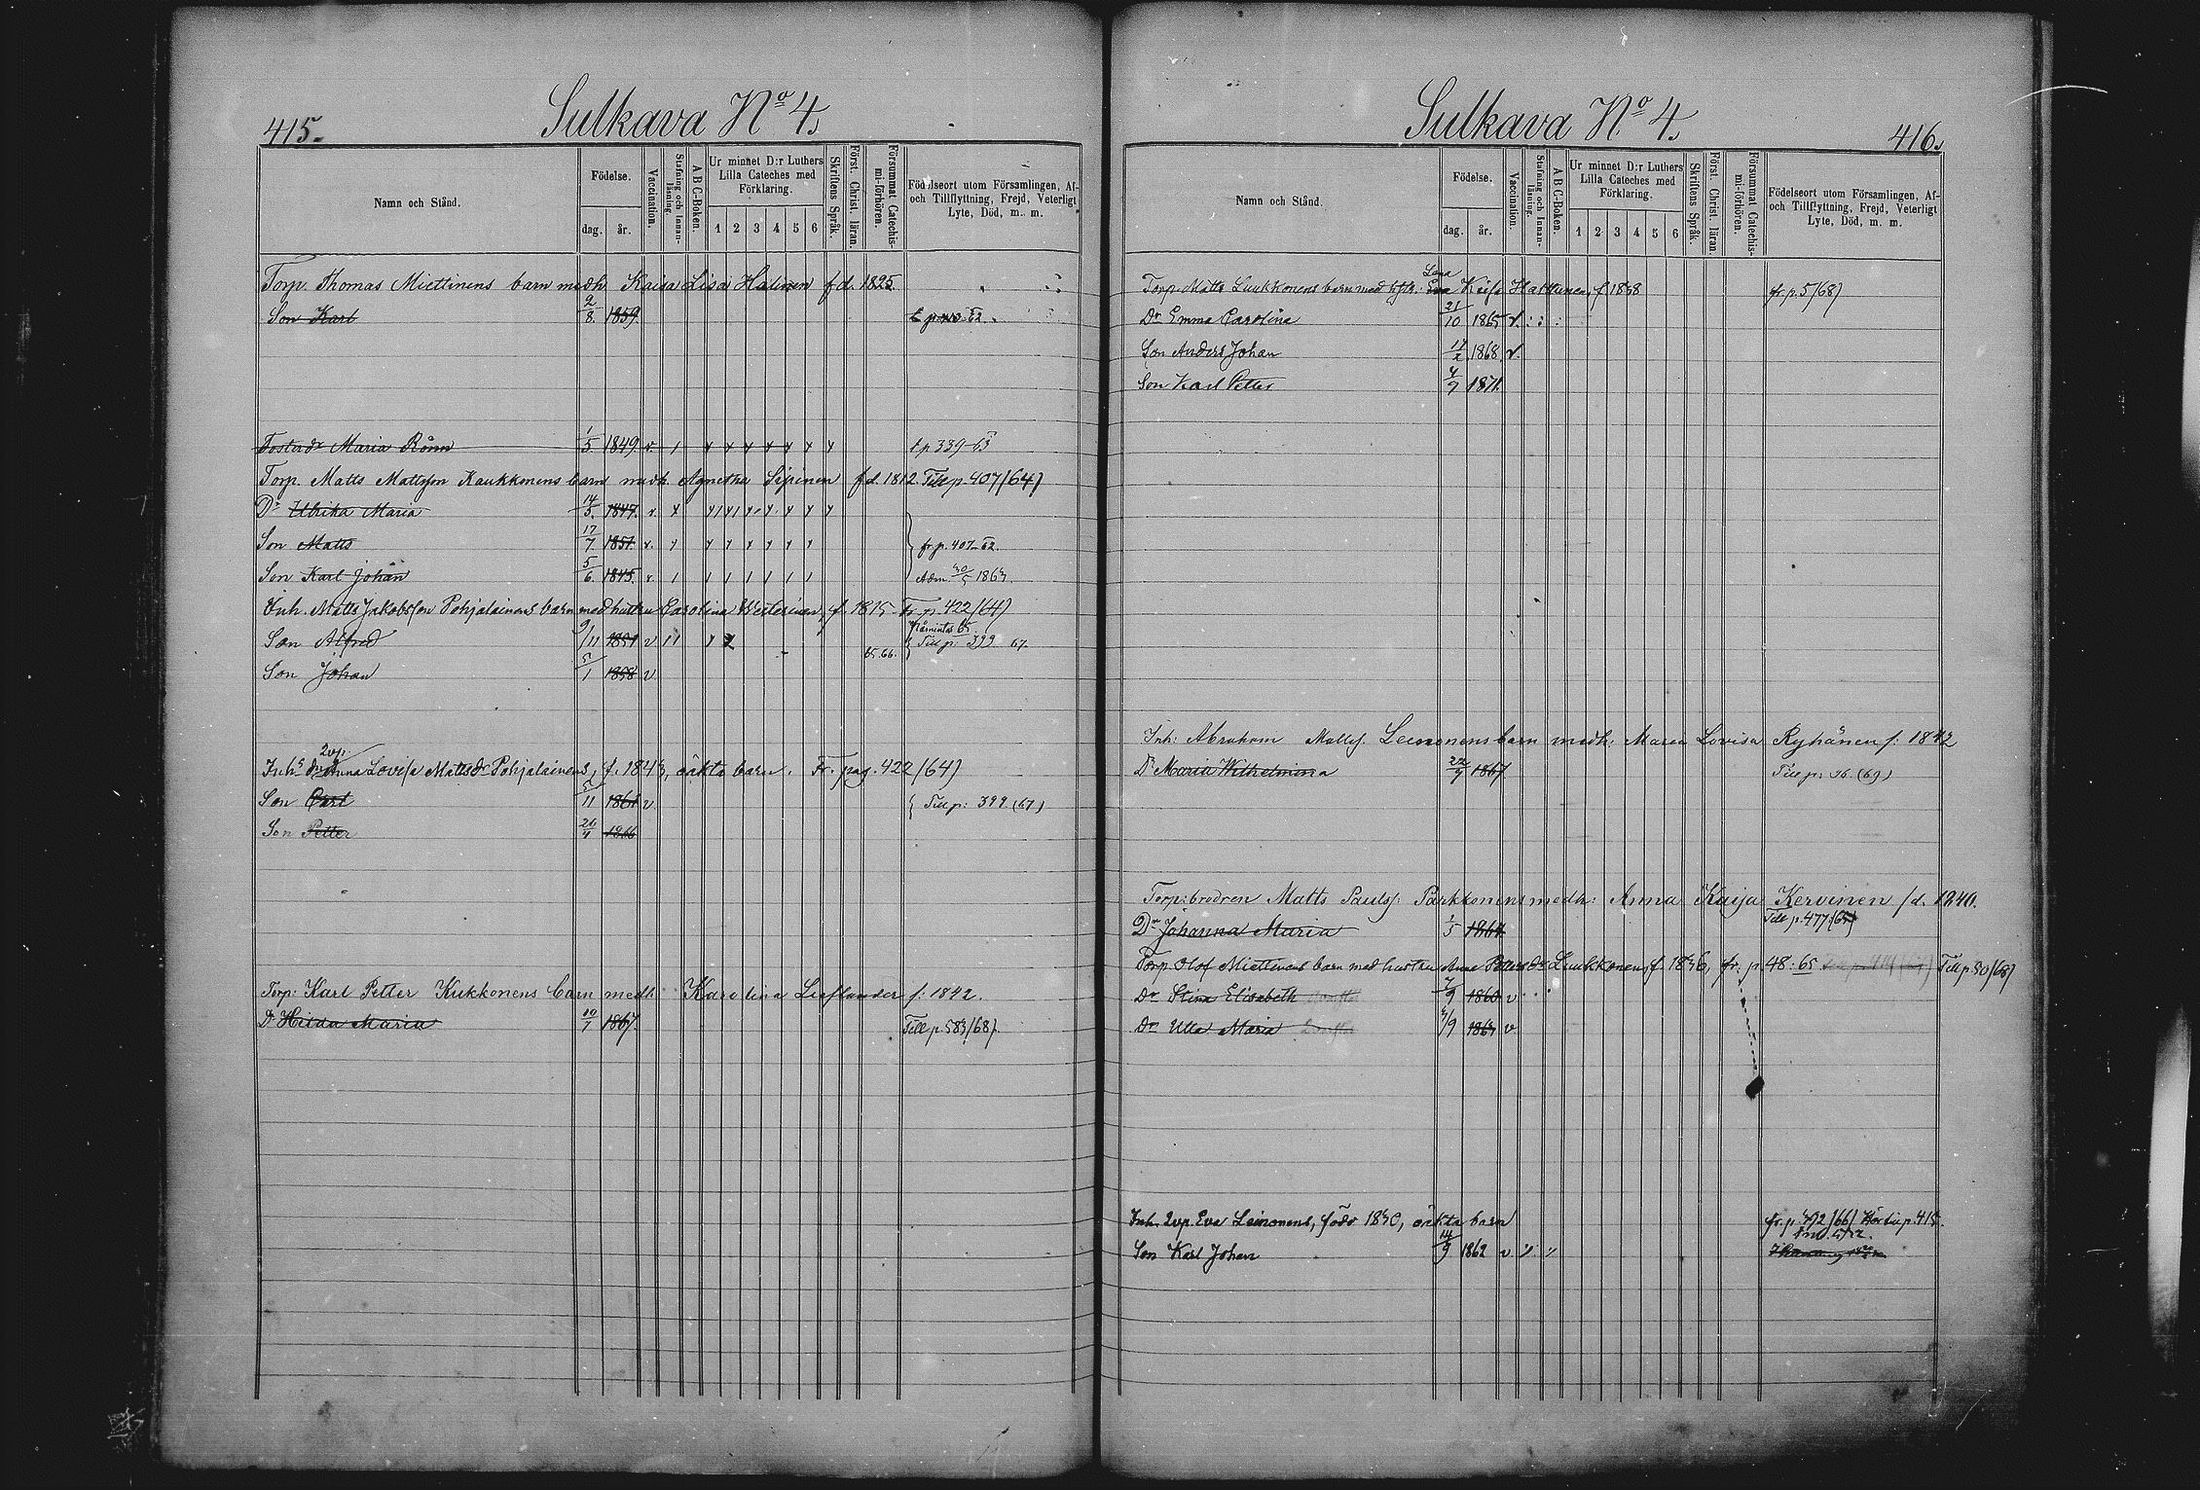 415.
Sulkava No 4.
Namn och Stånd.
Födelse.
dag.
år.
Vaccination.
Stafning och Innan-läsning
A B C-Boken.
Ur minnet D:r Luthers
Lilla Cateches med
Förklaring.
1 2 3 4 5 6
Skriftens Språk.
Först. Christ. läran.
Försummat Catechis-mi-förhören.
Födelseort utom Församlingen, Af-
och Tillflyttning, Frejd, Veterligt
Lyte, Död, m. m.
Torp. Thomas Miettinens barn medh. Kaisa Lisa Halinen f d. 1825
Son Karl 2/8 1859
Fosterdr Maria Rönn 1/5 1849 v. t p 339-63
Torp. Matts Mattsson Kaukkonens barn medh. Agnetha Sipinen f d. 1812 Till p. 407/64)
Dr Ulrika Maria 14/5 1847. v.
Son Matts 17/7 1851. v. fr p. 407-62.
Son Karl Johan 5/6 1845. v. Adm. 1864.
Inh. Matts Jakobsson Pohjalainens barn med hustru Carolina Westerinen, f. 1815 Fr. p. 422/64)
Son Alfred 9/11 1851 v 65.66. Till p: 399 67.
Son Johan 5/1 1858 v
2vp:
Inhs dr Anna Lovisa Mattsdr Pohjalainens, f. 1843, oäkta barn. Fr. pag. 422/64)
Son Carl 5/11 1861 v Till p: 399 (67)
Son Petter 1866
Torp: Karl Petter Kukkonens barn medh: Karolina Lieflander f: 1842.
Dr Hilda Maria 10/7 1867 Till p. 583/68).
416.
Sulkava No 4.
Namn och Stånd.
Födelse.
dag.
år.
Vaccination.
Stafning och Innan-läsning.
A B C-Boken.
Ur minnet D:r Luthers
Lilla Cateches med
Förklaring.
1 2 3 4 5 6
Skriftens Språk.
Först. Christ. läran
Försummat Catechis-mi-förhören.
Födelseort utom Församlingen, Af-
och Tillflyttning, Frejd, Veterligt
Lyte, Död, m. m.
Lena
Torp. Matts Luukkonens barn med hstr: Eva Kaisa Hattunen, f 1838 fr. p. 5/68)
Dr Emma Carolina 21/10 1865 v.
Son Anders Johan 17/2 1868 v.
Son Karl Petter 4/7 1871.
Inh: Abraham Mattss. Leinonens barn medh: Maria Lovisa Ryhänen f: 1842
Dr Maria Wilhelmina 22/9 1867 Till p: 36. (69)
Torp:brodren Matts Paulss: Parkkonens medh: Anna Kaija Kervinen f d. 1840.
Dr Johanna Maria 1/5 1864 Till p. 477 (65)
Torp Olof Miettinens barn med hustru Anna Pettersdr Luukkonen, f. 1836, fr: p. 48: 65 Till p. 50/68)
Dr Stina Elisabeth 7/9 1860 v
Dr Ulla Maria /9 v
Inh. 2vp. Eva Leinonens, född 1830, oäkta barn fr. p 492/66) Hör till p. 415.
Son Karl Johan 14/9 1862 v